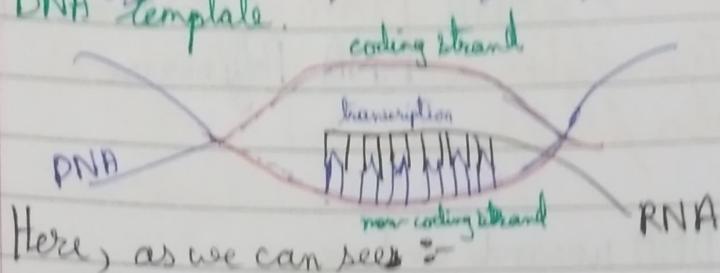 DNA Template.
coding strand
transcription
DNA
non-coding strand
RNA
Here, as we can see :-